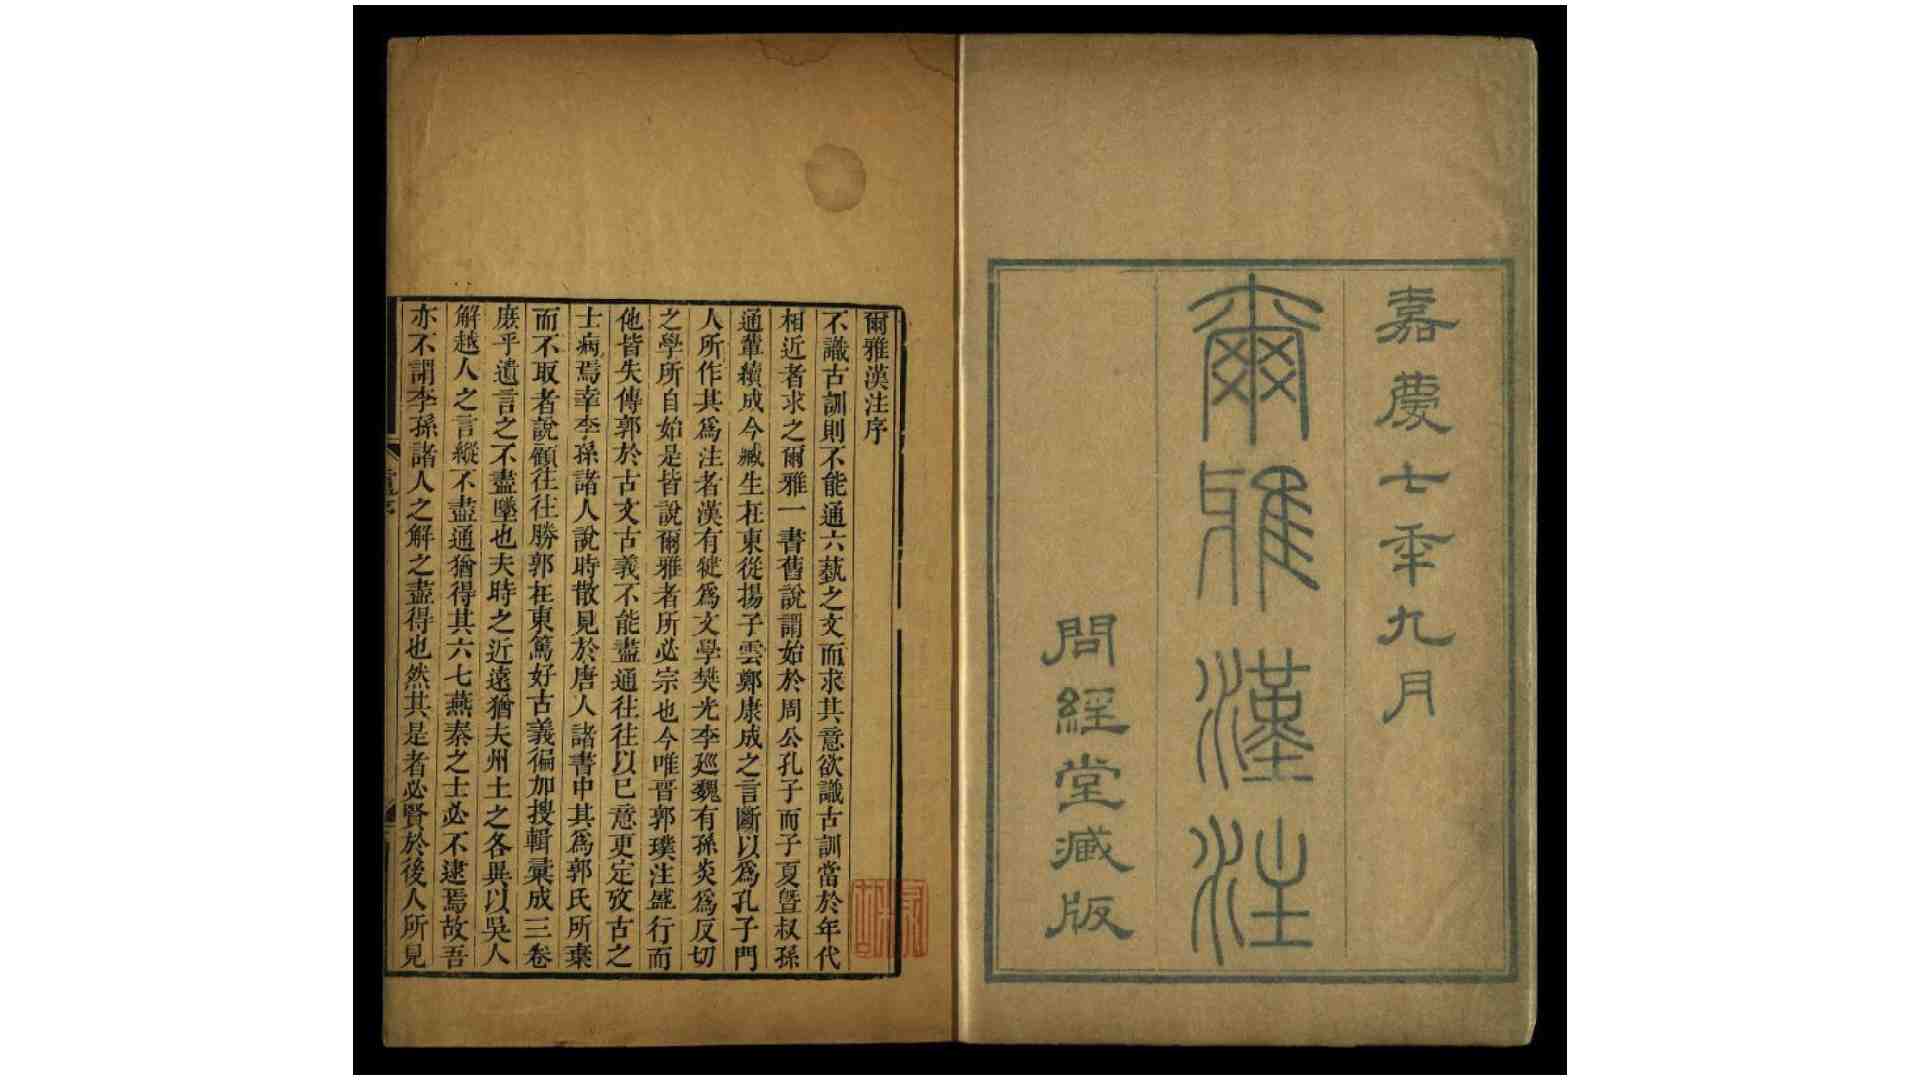 嘉慶七年九月
爾雅漢注
問經堂臧版
爾雅漢注序
不識古訓則不能通六蓺之文而求其意欲識古訓當於年代
相近者求之爾雅一書舊說謂始於周公孔子而子夏曁叔孫
通輩續成今臧生在東從揚子雲鄭康成之言斷以爲孔子門
人所作其爲注者漢有犍爲文學樊光李廵魏有孫炎爲反切
之學所自始是皆說爾雅者所必宗也今唯晋郭璞注盛行而
他皆失傳郭於古文古義不能盡通往往以已意更定攷古之
士病焉幸李孫諸人說時散見於唐人諸書中其爲郭氏所棄
而不取者說顧往往勝郭在東篤好古義徧加搜輯彚成三卷
庶乎遺言之不盡墜也夫時之近遠猶夫州土之各異以吳人
解越人之言縱不盡通猶得其六七燕秦之士必不逮焉故吾
亦不謂李孫諸人之解之盡得也然其是者必賢於後人所見